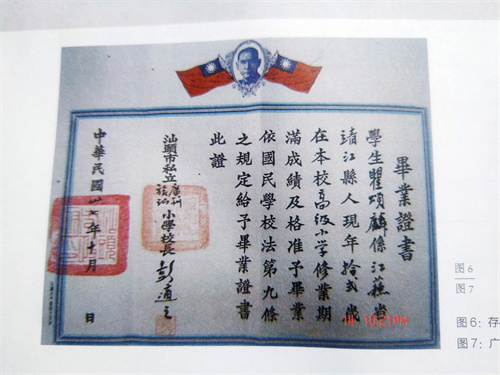 畢業證書
學生瞿頌麟係江蘇省
靖江縣人現年拾貳歲
在本校高級小學修業期
滿成績及格准予畢業
依國民學校法第九條
之規定給予畢業證書
此證
汕頭市私立廣州旅汕小學校長
中華民國卅七年十一月 日
10:21PM
图6
图7
图6：存
图7：广